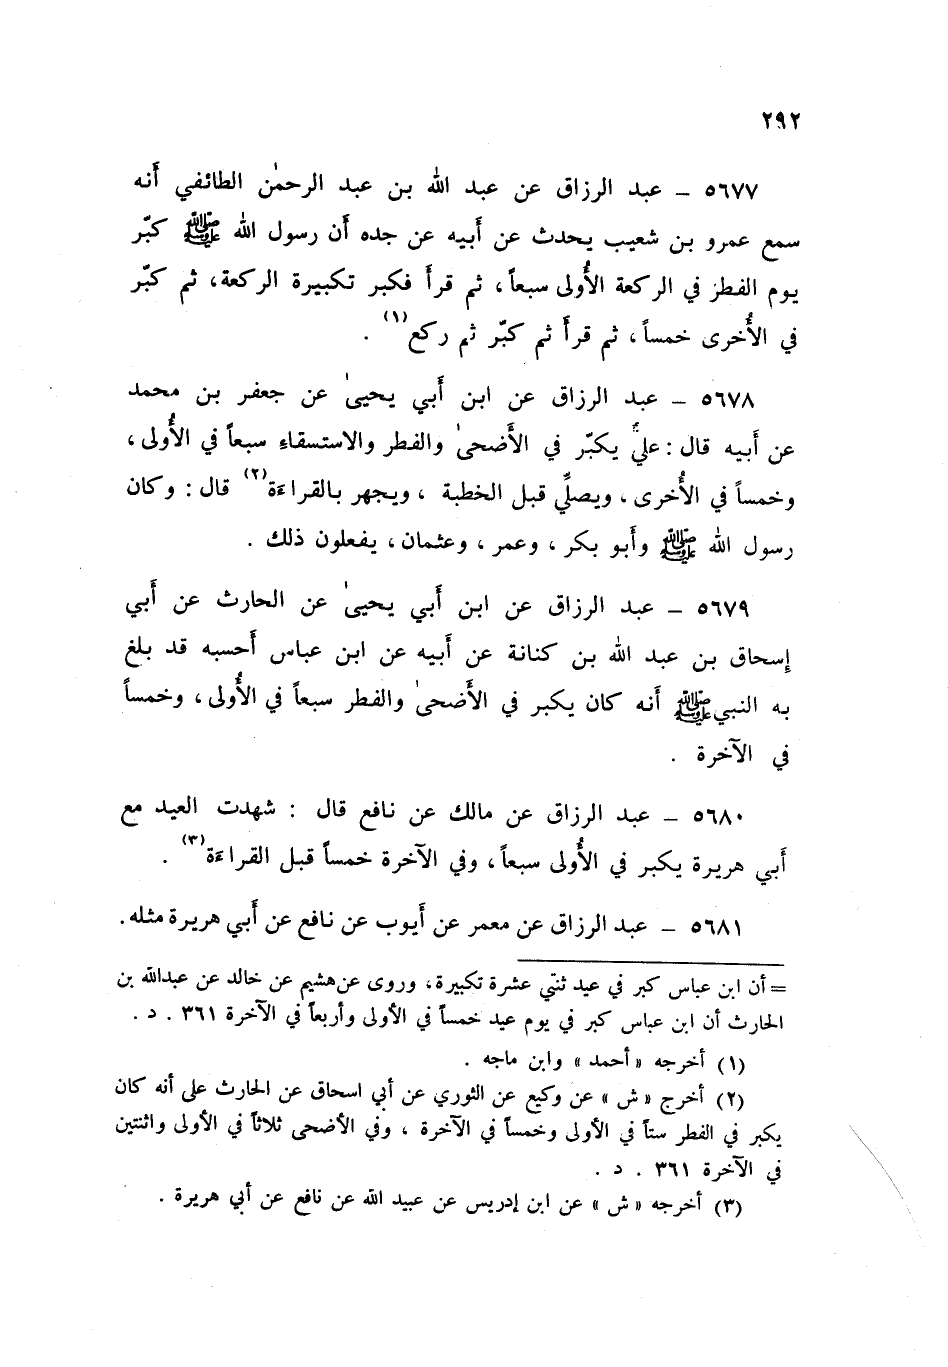 ٢٩٢
٥٦٧٧ ــ عبد الرزاق عن عبد الله بن عبد الرحمٰن الطائفي أنه
سمع عمرو بن شعيب يحدث عن أبيه عن جده أن رسول الله ﷺ كبّر
يوم الفطر في الركعة الأُولى سبعاً، ثم قرأ فكبر تكبيرة الركعة، ثم كبّر
في الأُخرى خمساً، ثم قرأ ثم كبّر ثم ركع(١) .
٥٦٧٨ ــ عبد الرزاق عن ابن أبي يحيىٰ عن جعفر بن محمد
عن أبيه قال : عليٌّ يكبّر في الأضحىٰ والفطر والاستسقاء سبعاً في الأُولى،
وخمساً في الأُخرى، ويصلِّي قبل الخطبة ، ويجهر بالقراءة(٢) قال : وكان
رسول الله ﷺ وأبو بكر، وعمر، وعثمان، يفعلون ذلك .
٥٦٧٩ ــ عبد الرزاق عن ابن أبي يحيىٰ عن الحارث عن أبي
إسحاق بن عبد الله بن كنانة عن أبيه عن ابن عباس أحسبه قد بلغ
به النبي ﷺ أنه كان يكبر في الأضحىٰ والفطر سبعاً في الأُولى، وخمساً
في الآخرة .
٥٦٨٠ ــ عبد الرزاق عن مالك عن نافع قال : شهدت العيد مع
أبي هريرة يكبر في الأُولى سبعاً، وفي الآخرة خمساً قبل القراءة(٣) .
٥٦٨١ ــ عبد الرزاق عن معمر عن أيوب عن نافع عن أبي هريرة مثله.
= أن ابن عباس كبر في عيد ثنتي عشرة تكبيرة، وروى عن هشيم عن خالد عن عبدالله بن
الحارث أن ابن عباس كبر في يوم عيد خمساً في الأولى وأربعاً في الآخرة ٣٦١ . د .
(١) أخرجه «أحمد» وابن ماجه .
(٢) أخرج «ش» عن وكيع عن الثوري عن أبي اسحاق عن الحارث على أنه كان
يكبر في الفطر ستاً في الأولى وخمساً في الآخرة ، وفي الأضحى ثلاثاً في الأولى واثنتين
في الآخرة ٣٦١ . د .
(٣) أخرجه «ش» عن ابن إدريس عن عبيد الله عن نافع عن أبي هريرة .